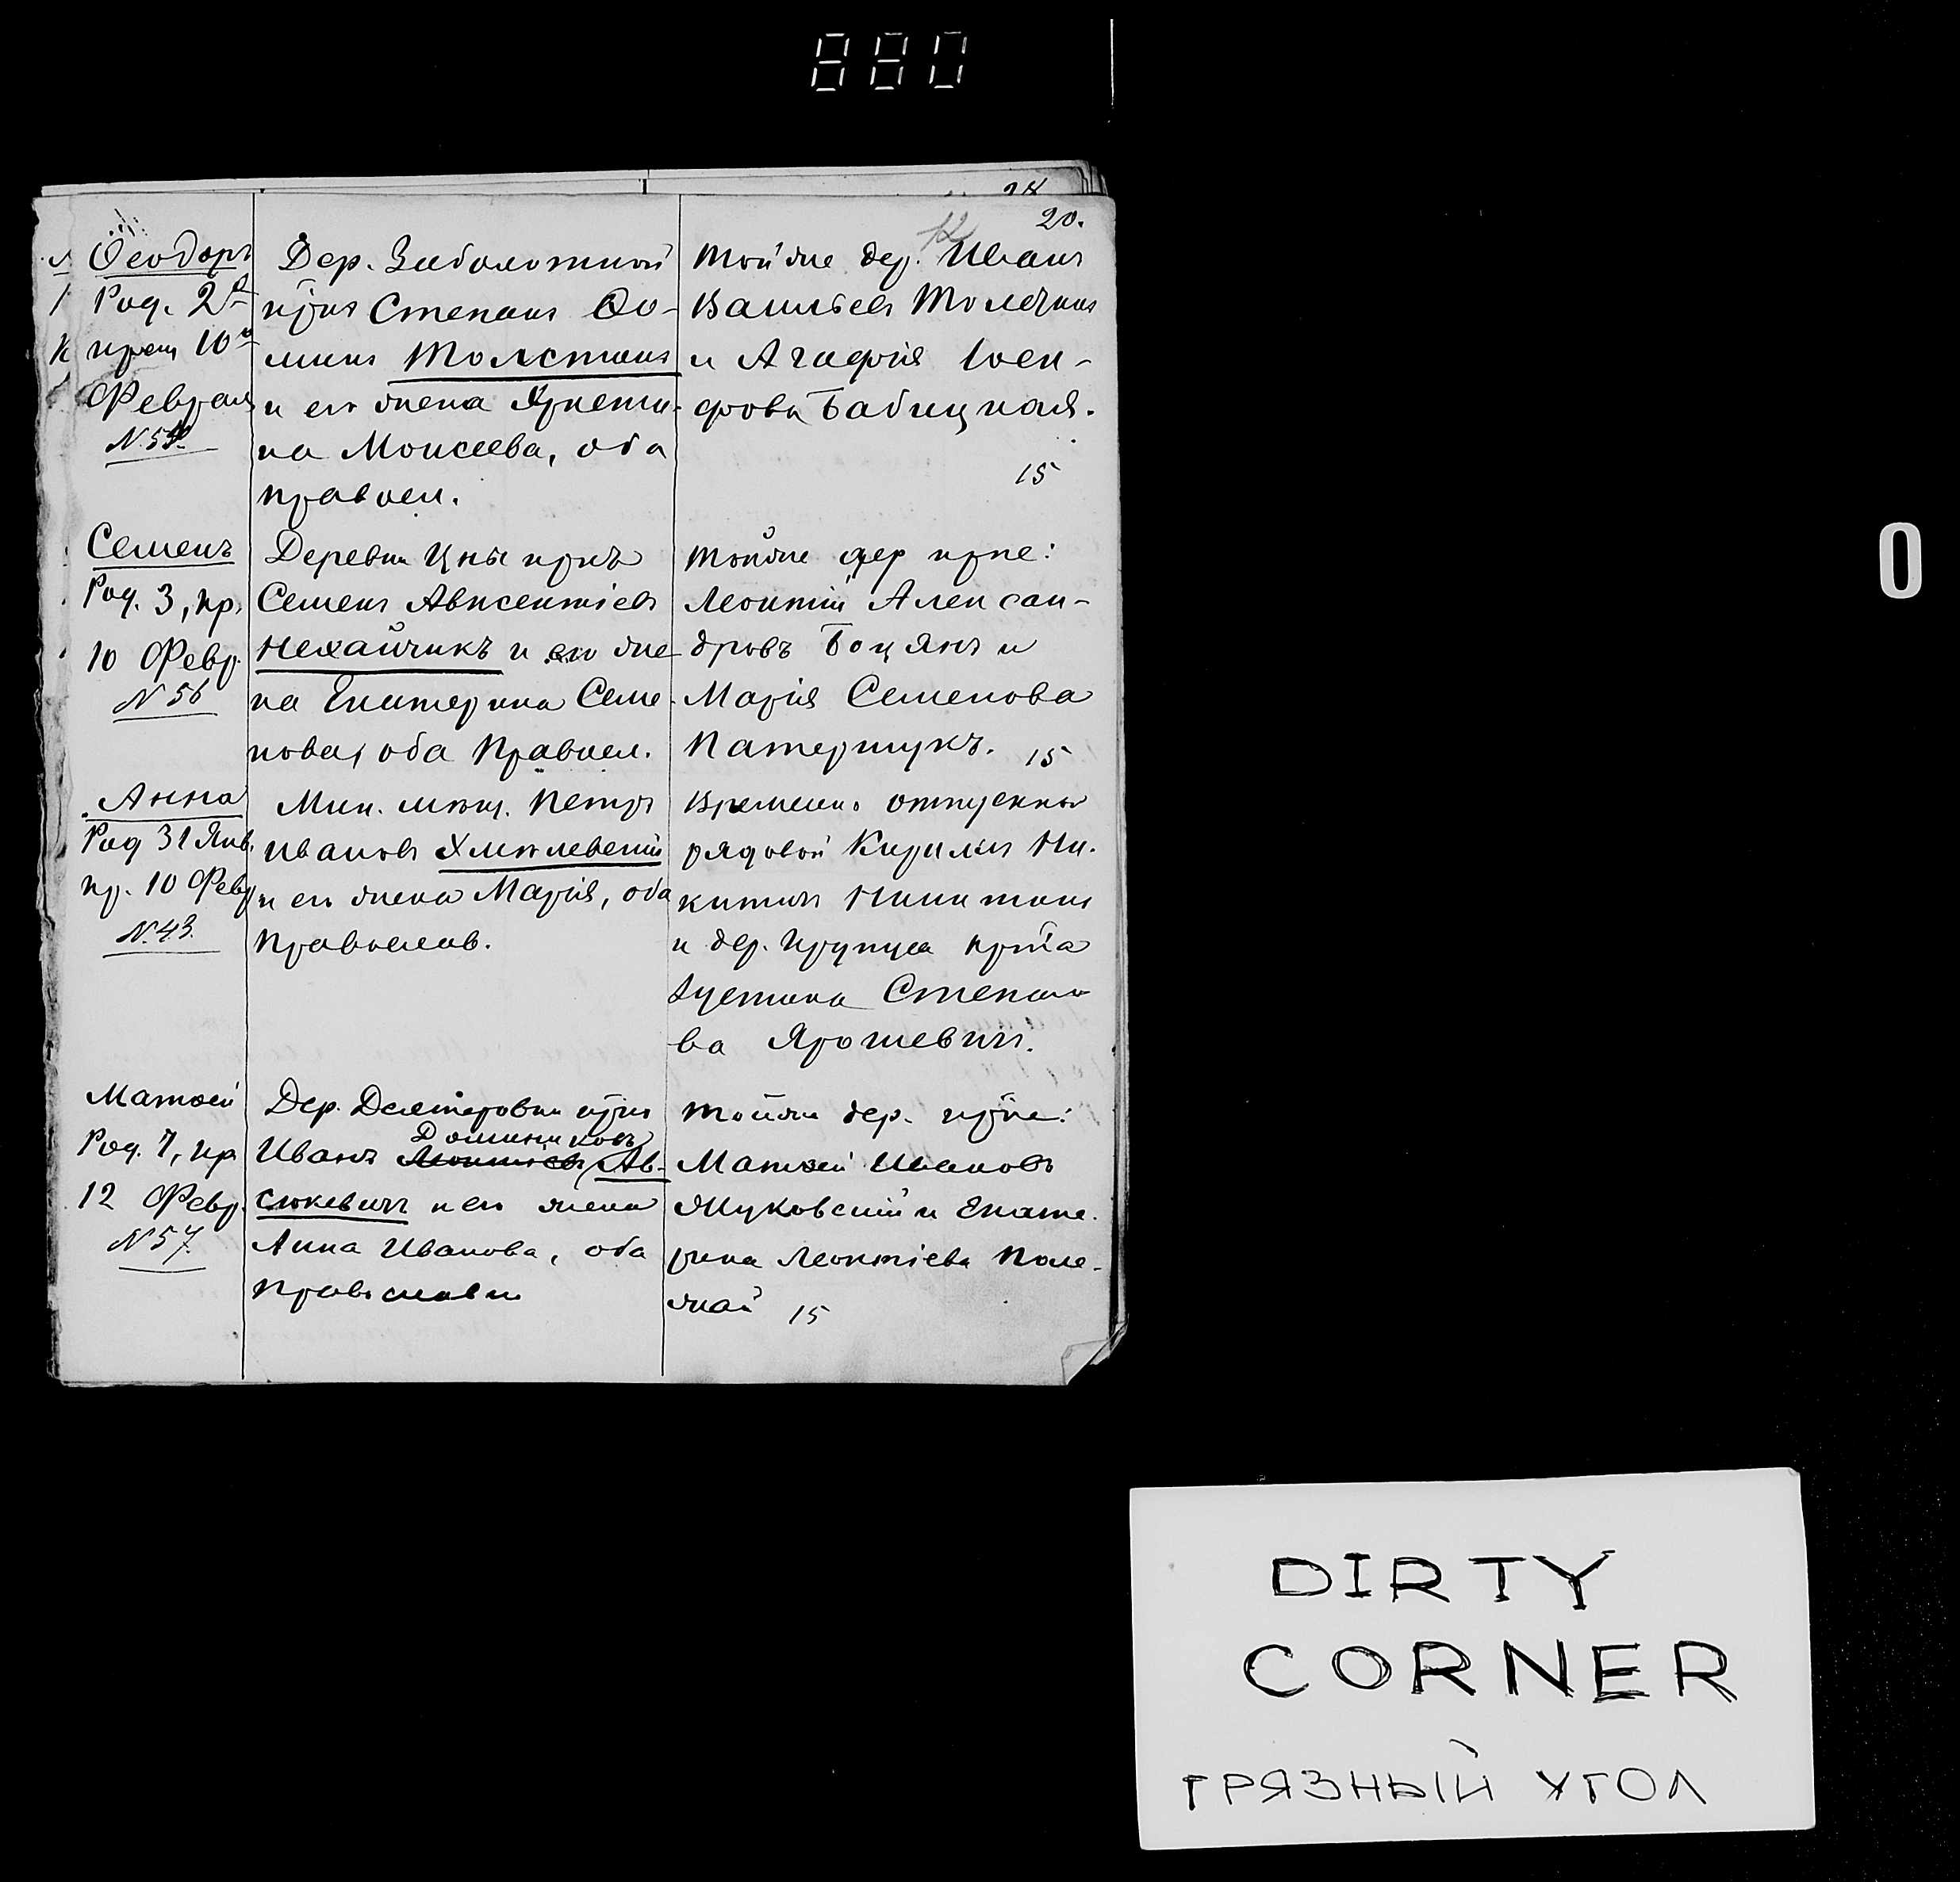 880
20.
12
Ѳеодоръ
Род. 2го
крещ 10го
Февраля
N.55.
Дер. Заболотной
кр̃нъ Степанъ Ѳо-
минъ Толстикъ
и его жена Устини-
на Моисеева, оба
правосл.
Той же дер. Иванъ
Васильевъ Толстикъ
и Агафія Іоси-
фова Бабицкая.
15
Семенъ
Род. 3, кр.
10 Февр.
N 56
Деревни Цны крнъ
Семенъ Авксентіевъ
Нехайчикъ и его же-
на Екатерина Семе-
нова, оба Правосл.
Той же дер крне:
Леонтій Алексан-
дровъ Боцянъ и
Марія Семенова
Патершукъ. 15
Анна
Род 31 Янв.
кр. 10 Февр
N.43.
Мин. мѣщ. Петръ
Ивановъ Хмѣлевскій
и его жена Марія, оба
Православ.
Временно отпускной
рядовой Кирилъ Ни-
китинъ Никитинъ
и дер. Крупца крт̃а
Іустина Степано-
ва Ярошевичъ.
Матѳей
Род. 7, кр
12 Февр.
N 57.
Дер. Дегтяровки кр̃нъ
Доминиковъ
Иванъ Леонтіевъ Ав-
сюкевичъ и его жена
Анна Иванова, оба
Православн
Той же дер. кр̃не:
Матѳей Ивановъ
Жуковскій и Екате-
рина Леонтіева Поле-
жай 15
0
DIRTY
CORNER
ГРЯЗНЫЙ УГОЛ